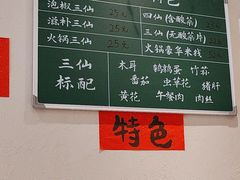 泡椒三仙 25元
四仙(含酸菜)
滋补三仙 25元
三仙(无酸菜片)
火锅三仙 25元
火锅豪华米线
三仙
标配
木耳 鹌鹑蛋 竹荪
番茄 虫草花 猪肝
黄花 午餐肉 肉丝
特色